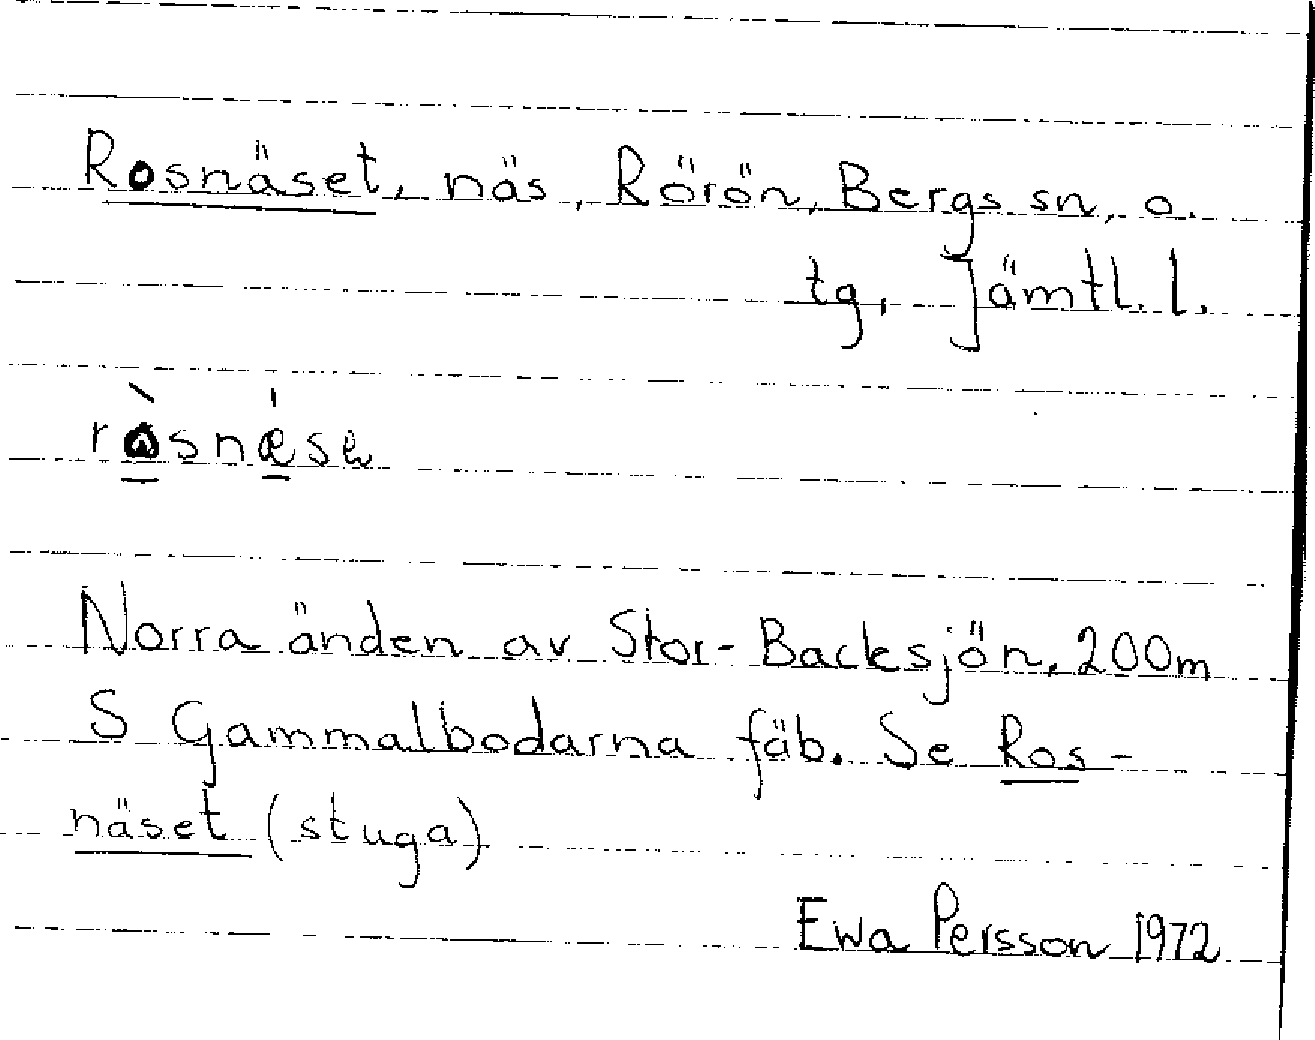 Rosnäset, näs, Rörön, Bergs sn, o.
tg, Jämtl. l.
Norra änden av Stor-Backsjön, 200m
S Gammalbodarna fäb. Se Ros-
näset (stuga)
Ewa Persson 1972